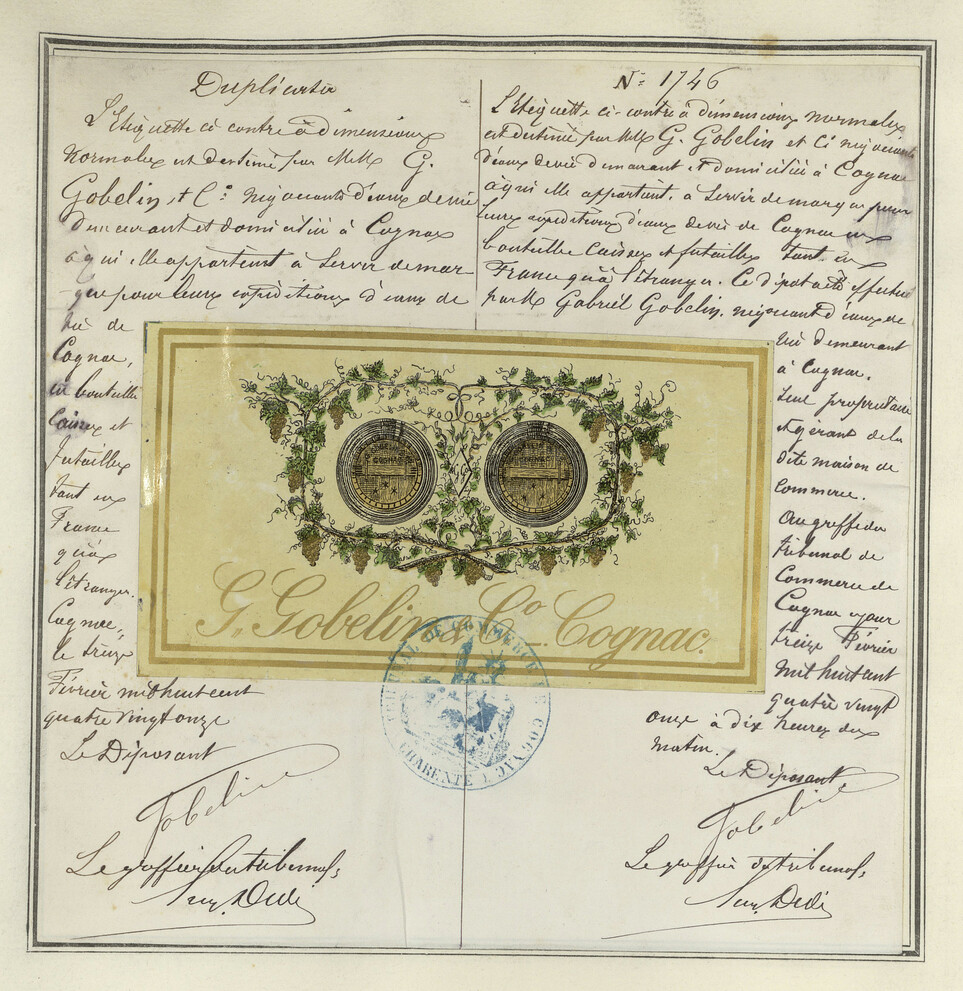 Duplicata
L'Etiquette ci contre à dimensions
Normales est destiné par MM G.
Gobelin & Cie négociants d'eaux de vie
demeurant et domicilié à Cognac
à qui elle appartient à servir de mar
que pour leurs expéditions d'eaux de
vie de
Cognac,
en bouteille
Caisses et
futailles
tant en
France
qu'à
l'étranger.
Cognac,
le treize
Février mil huit cent
quatre vingt onze
Le Déposant
Gobelin
Le greffier du tribunal,
N° 1746
L'Etiquette ci-contre à dimensions normales
est destiné par MM G. Gobelin et Cie négociants
d'eaux de vie demeurant et domicilié à Cognac
à qui elle appartient, à servir de marque pour
leurs expéditions d'eaux de vie de Cognac en
bouteille Caisses et futailles tant en
France qu'à l'étranger. Ce dépôt a été effectué
par M Gabriel Gobelin, négociant d'eaux de
vie demeurant
à Cognac.
Seul propriétaire
et gérant de la
dite maison de
Commerce.
Au greffe du
tribunal de
Commerce de
Cognac ce jour
treize Février
mil huit cent
quatre vingt
onze à dix heures du
matin.
Le Déposant
Gobelin
Le greffier du tribunal,
COGNAC
COGNAC
G. Gobelin & Co. Cognac.
TRIBUNAL DE COMMERCE DE COGNAC
(CHARENTE)